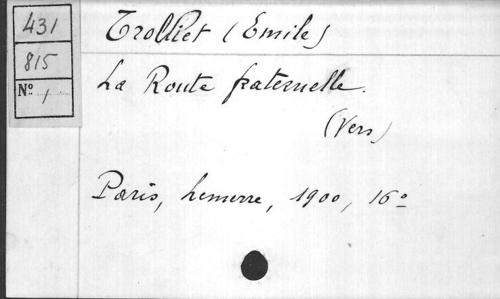 431
815
Nº 1
Trolliet (Emile)
La Route fraternelle.
(Vers)
Paris, Lemerre, 1900, 16º